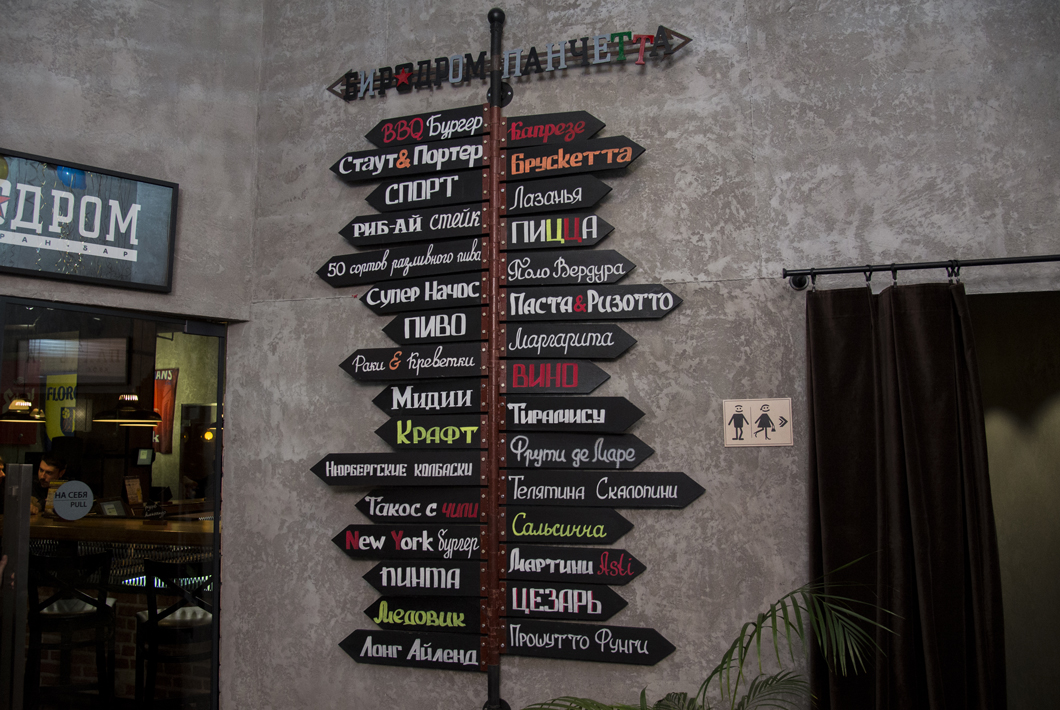 БИРОДРОМ ПАНЧЕТТА
BBQ Бургер
Стаут & Портер
СПОРТ
РИБ-АЙ СТЕЙК
50 сортов разливного пива
Супер Начос
ПИВО
Раки & Креветки
Мидии
КРАФТ
Нюрбергские колбаски
Такос с чили
New York бургер
ПИНТА
Медовик
Лонг Айленд
Капрезе
Брускетта
Лазанья
ПИЦЦА
Поло Вердура
Паста & Ризотто
Маргарита
ВИНО
Тирамису
Фрути де Маре
Телятина Скалопини
Сальсичча
Мартини Asti
ЦЕЗАРЬ
Прошутто Фунги
ДРОМ
РАН-БАР
НА СЕБЯ
PULL